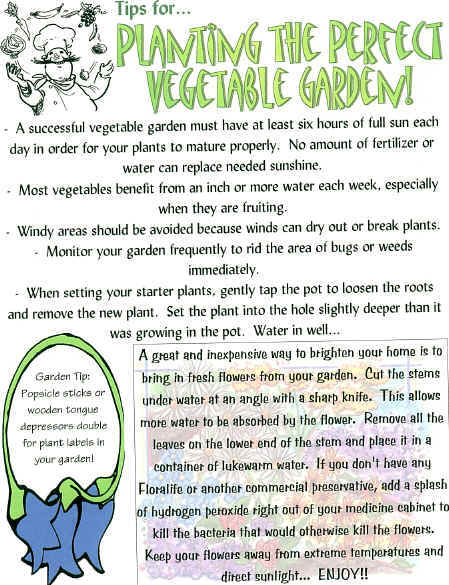 Tips for...
PLANTING THE PERFECT
VEGETABLE GARDEN!
- A successful vegetable garden must have at least six hours of full sun each
day in order for your plants to mature properly. No amount of fertilizer or
water can replace needed sunshine.
- Most vegetables benefit from an inch or more water each week, especially
when they are fruiting.
- Windy areas should be avoided because winds can dry out or break plants.
- Monitor your garden frequently to rid the area of bugs or weeds
immediately.
- When setting your starter plants, gently tap the pot to loosen the roots
and remove the new plant. Set the plant into the hole slightly deeper than it
was growing in the pot. Water in well...
Garden Tip:
Popsicle sticks or
wooden tongue
depressors double
for plant labels in
your garden!
A great and inexpensive way to brighten your home is to
bring in fresh flowers from your garden. Cut the stems
under water at an angle with a sharp knife. This allows
more water to be absorbed by the flower. Remove all the
leaves on the lower end of the stem and place it in a
container of lukewarm water. If you don't have any
Floralife or another commercial preservative, add a splash
of hydrogen peroxide right out of your medicine cabinet to
kill the bacteria that would otherwise kill the flowers.
Keep your flowers away from extreme temperatures and
direct sunlight... ENJOY!!